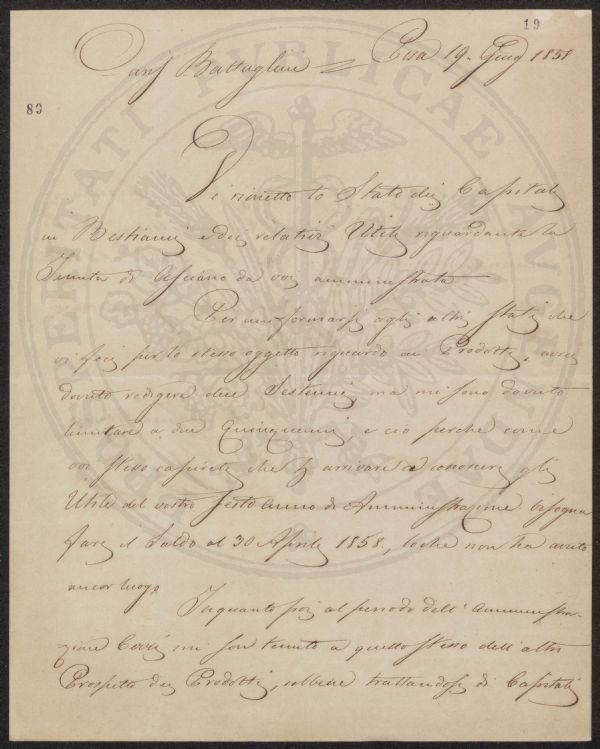 19
Battaglini = Pisa 19. Giug 1858
89
Vi rimetto lo Stato dei Capitali
in Bestiami e dei relativi Utili riguardante la
Tenuta di Asciano da voi amministrata
Per uniformarsi agli altri Stati che
vi feci per lo stesso oggetto riguardo ai Prodotti, avrei
dovuto redigere due Sestenni, ma mi sono dovuto
limitare a due Quinquenni, e ciò perche come
voi stesso capirete che p arrivare a conoscere gli
Utili del vostro sesto anno di Amministrazione bisogna
fare il Saldo al 30 Aprile 1858, loche non ha avuto
ancor luogo
Inquanto poi al periodo dell' Amministra-
zione mi son tenuto a quello stesso dell'altro
Prospetto dei Prodotti, sebbene trattandosi di Capitali